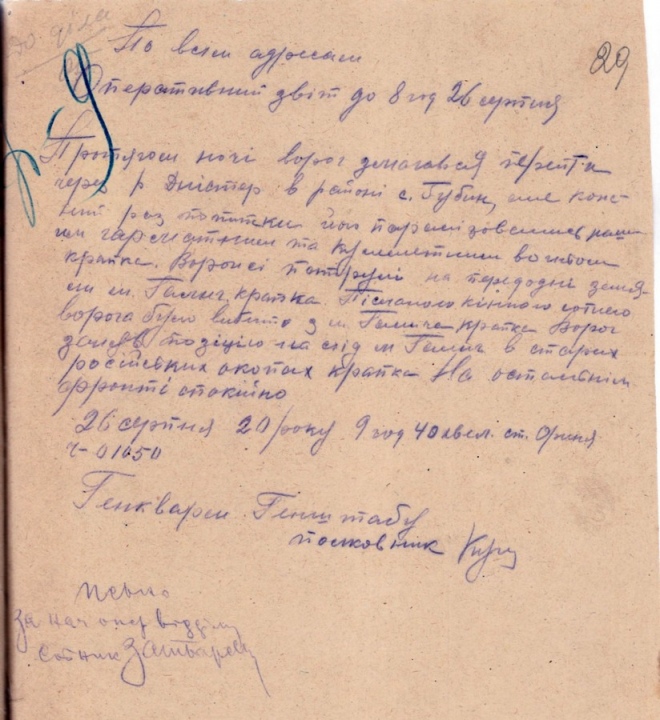 До діла
29
По всім адресам
Оперативний звіт до 8 год 26 серпня
Протягом ночі ворог змагався перейти
через р Дністер в районі с. Бубин, але кож-
ний раз попитки його паралізовались наши
ми гарматним та кулеметним вогнем
крапка. Ворожі патрулі на передодні заня-
ли м. Галич крапка. Після кінного
ворога було вибито з м. Галича крапка Ворог
заняв позицію на схід м Галич в старих
російських окопах крапка На останнім
фронті спокійно
26 серпня 20 року 9 год 40 хвил. ст.
ч-01050
Генкварм Генштабу
полковник
за нач опер відділу
сотник